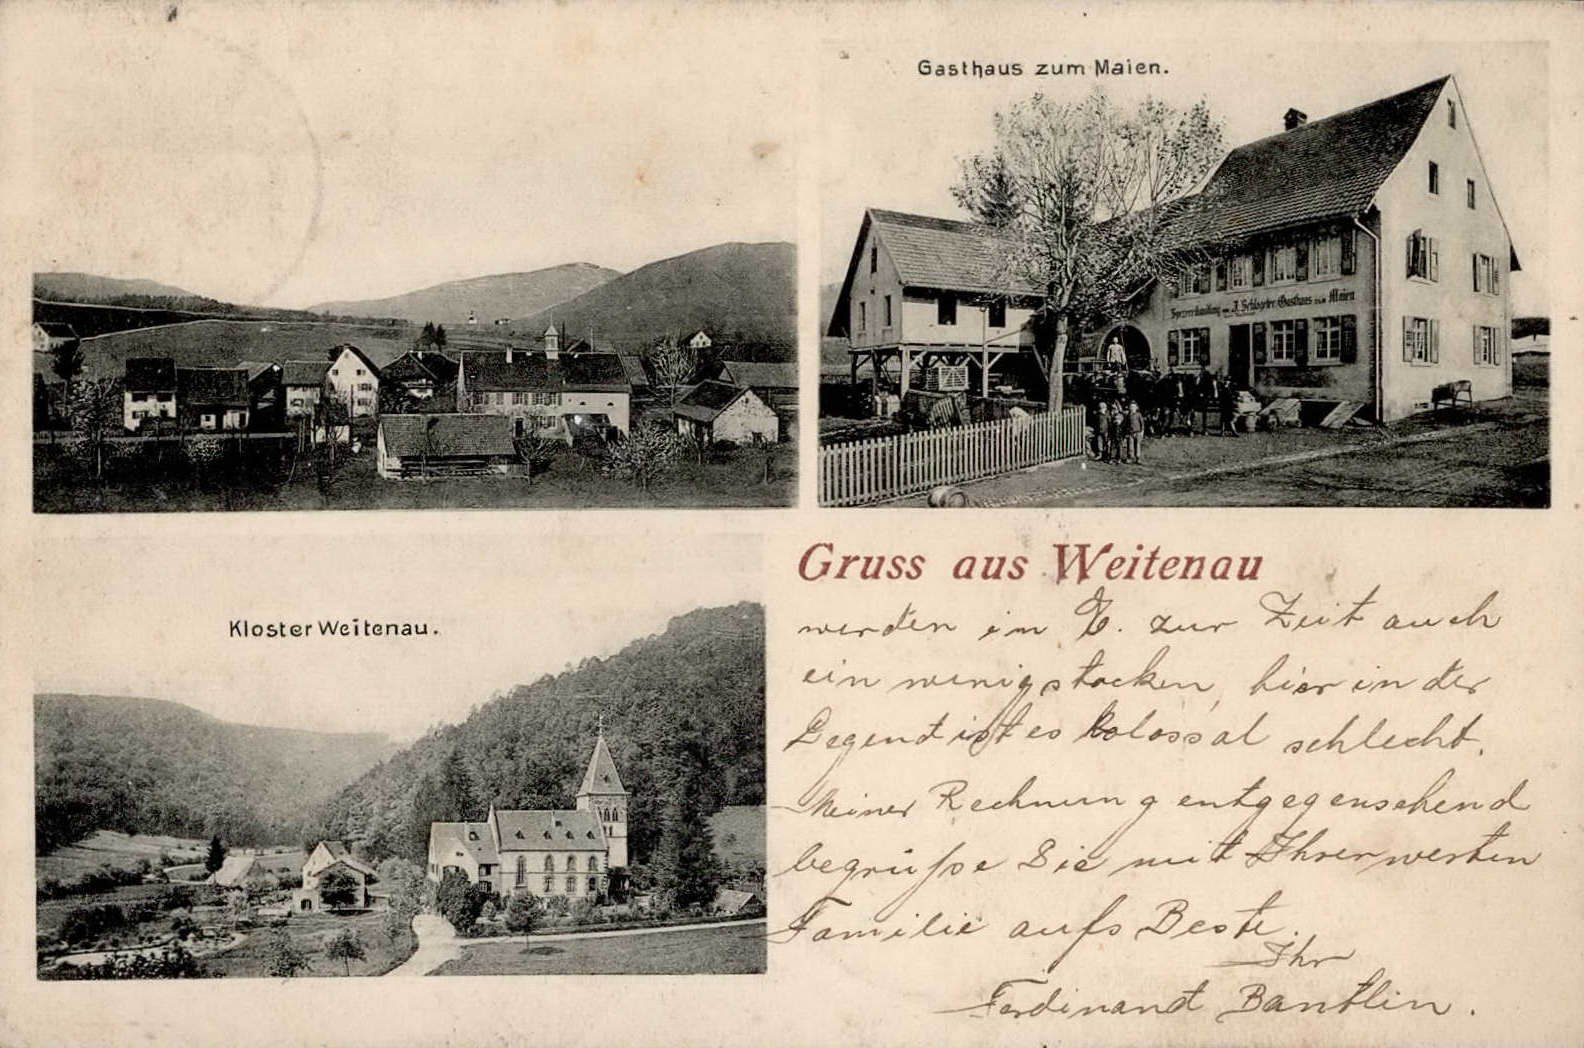 Gasthaus zum Maien.
Spezereihandlung von J. Schlageter, Gasthaus zum Maien
Kloster Weitenau.
Gruss aus Weitenau
werden in E. zur Zeit auch
ein wenig stocken, hier in der
Gegend ist es kolossal schlecht.
Meiner Rechnung entgegensehend
begrüße Sie mit Ihrer werten
Familie aufs Beste.
Ihr
Ferdinand Bantlin.